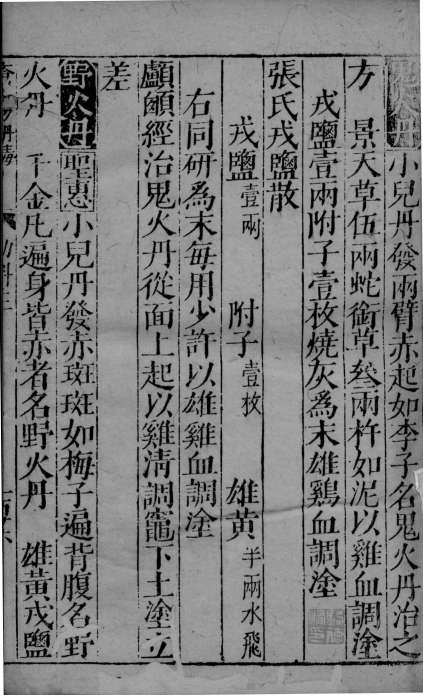 鬼火丹 小兒丹發兩臂赤起如李子名鬼火丹治之
方 景天草伍兩蛇銜草叄兩杵如泥以雞血調塗
戎鹽壹兩附子壹枚燒灰爲末雄鷄血調塗
張氏戎鹽散
戎鹽壹兩 附子壹枚 雄黃半兩水飛
右同研爲末每用少許以雄雞血調塗
顱顖經治鬼火丹從面上起以雞淸調竈下土塗立
差
野火丹 聖惠小兒丹發赤斑斑如梅子遍背腹名野
火丹 千金凡遍身皆赤者名野火丹 雄黃戎鹽